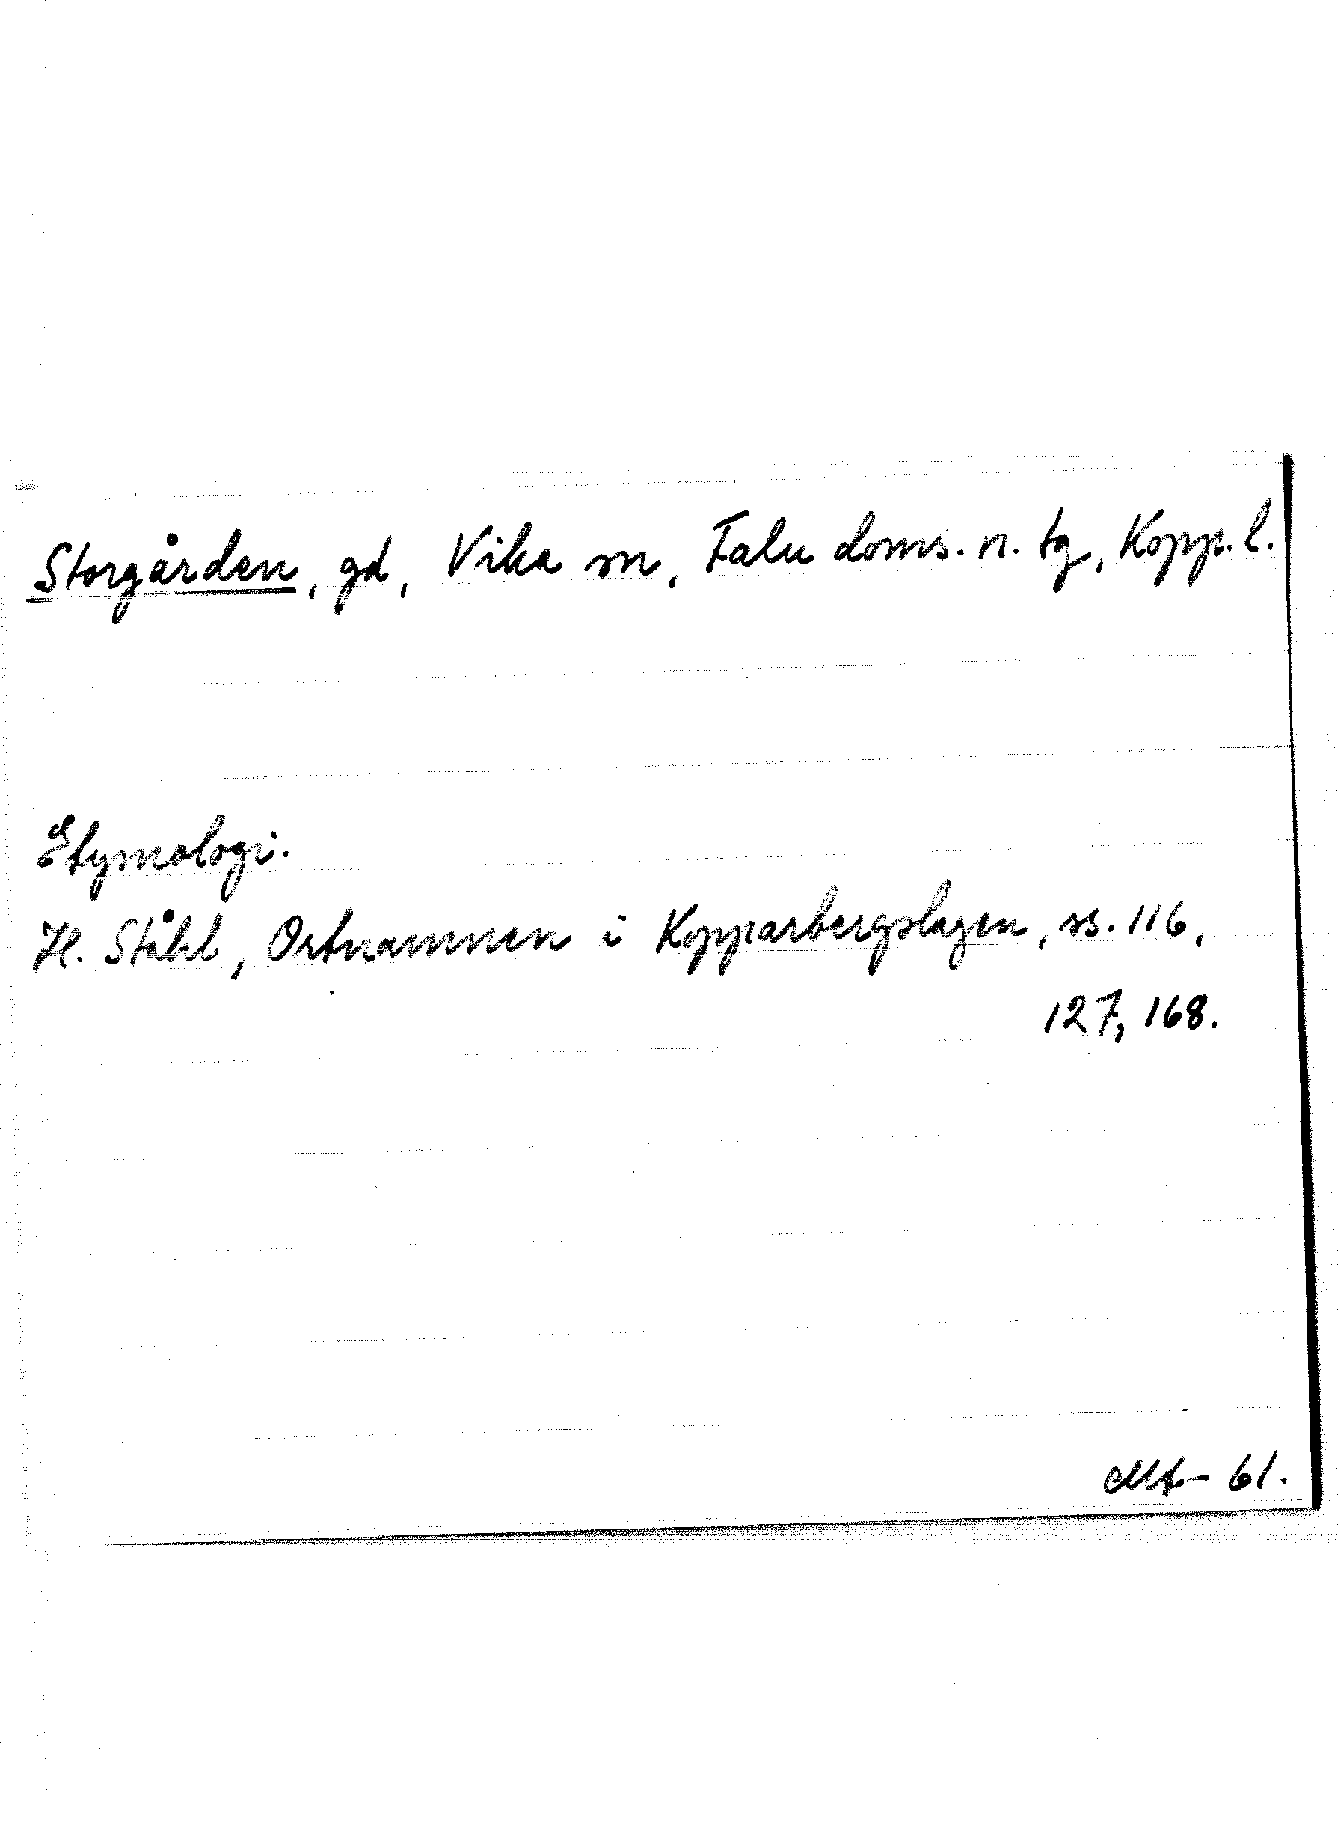 Storgården, gd, Vika sn, Falu doms. n. tg, Kopp. l.
Etymologi.
H. Ståhl, Ortnamnen i Kopparbergslagen, ss. 116,
127, 168.
61.